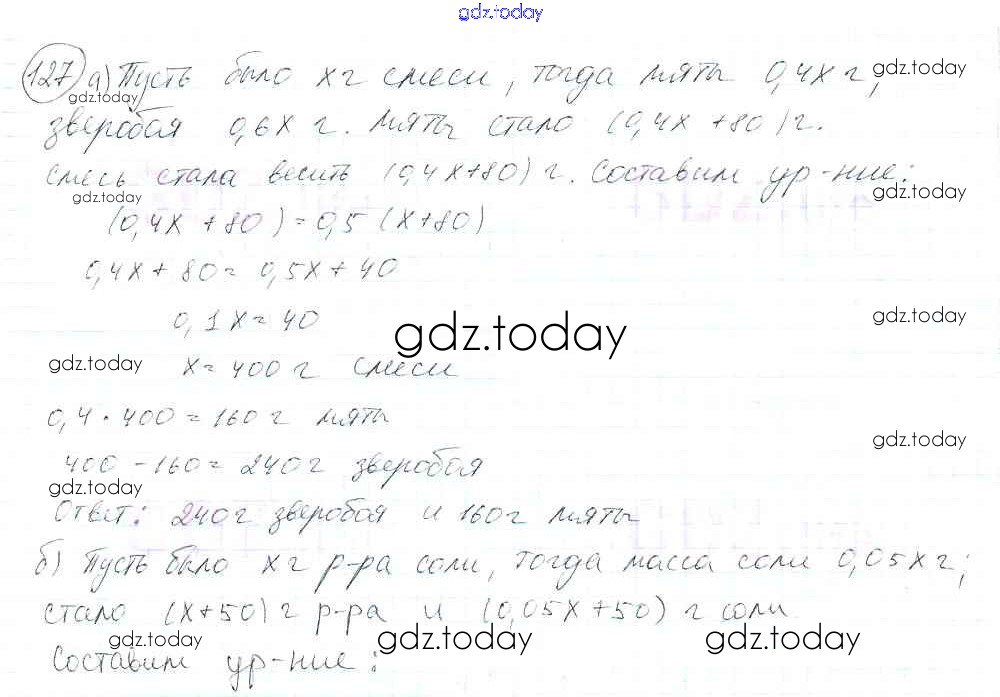 gdz.today
127 а) Пусть было x г смеси, тогда мяты 0,4x г, gdz.today
gdz.today
зверобоя 0,6x г. Мяты стало (0,4x +80) г.
смесь стала весить (0,4x+80) г. Составим ур-ние:
gdz.today gdz.today
(0,4x + 80) = 0,5 (x+80)
0,4x + 80 = 0,5x + 40
0,1x = 40 gdz.today gdz.today
gdz.today x = 400 г смеси
0,4 · 400 = 160 г мяты
gdz.today
400 - 160 = 240 г зверобоя
gdz.today
Ответ: 240 г зверобоя и 160 г мяты
б) Пусть было x г р-ра соли, тогда масса соли 0,05x г;
стало (x+50) г р-ра и (0,05x+50) г соли
gdz.today gdz.today gdz.today
Составим ур-ние: